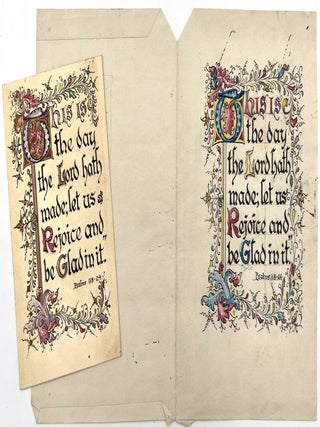 This is
the day
the Lord hath
made; let us
Rejoice and
be Glad in it.
Psalms 118-24
This is
the day
the Lord hath
made; let us
Rejoice and
be Glad in it.
Psalms 118-24